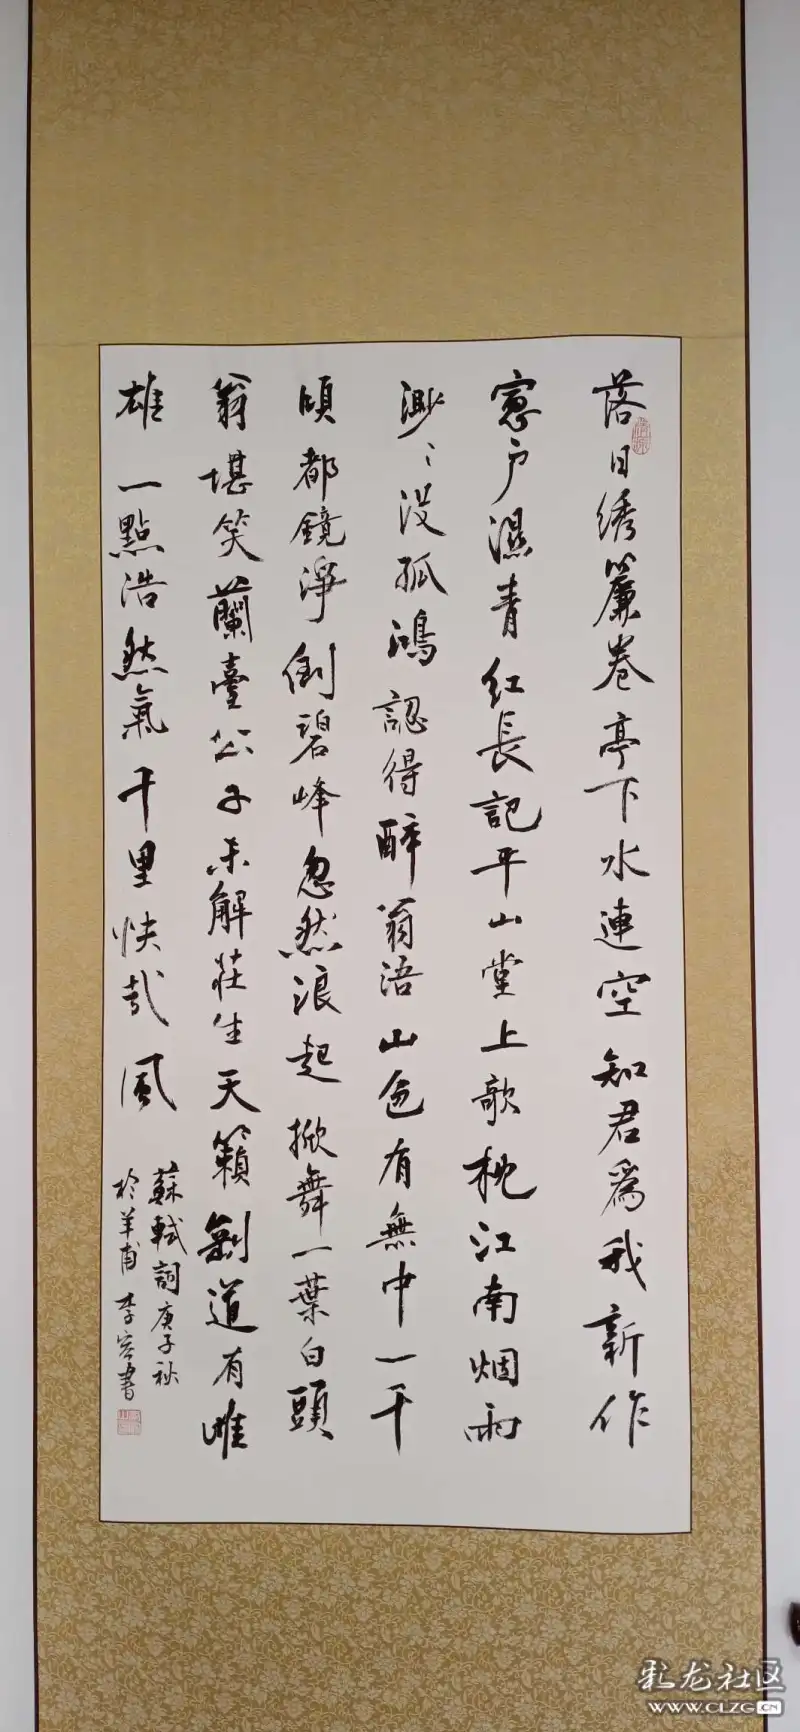 落日绣簾卷亭下水連空知君爲我新作
窻户濕青紅長記平山堂上欹枕江南烟雨
渺〻没孤鴻認得醉翁語山色有無中一千
頃都鏡淨倒碧峰忽然浪起掀舞一葉白頭
翁堪笑蘭臺公子未解莊生天籟剛道有雌
雄一點浩然氣千里快哉風
蘇軾詞庚子秋
於羊甫李書
彩龙社区
WWW.CLZG.CN